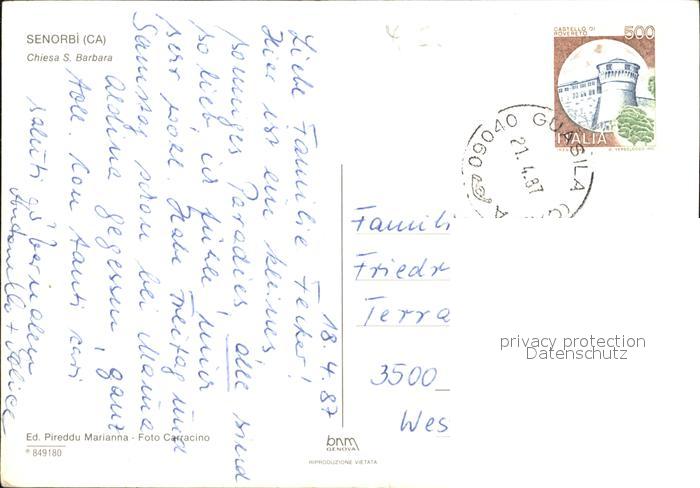 SENORBÌ (CA)
Chiesa S. Barbara
18.4.87
Liebe Familie Fecher!
Hier ist ein kleines
sonniges Paradies, alle sind
so lieb, ich fühle mich
sehr wohl. Habe Freitag und
Samstag schon bei Maria
Aldina gegessen, ganz
toll. Con tanti cari
saluti
Antonella + Alice
CASTELLO DI
ROVERETO
500
ITALIA
09040 GUASILA (CA)
21.4.87
Famili
Friedr
Terra
3500
Wes
privacy protection
Datenschutz
Ed. Pireddu Marianna - Foto Carracino
* 849180
bnm
GENOVA
RIPRODUZIONE VIETATA